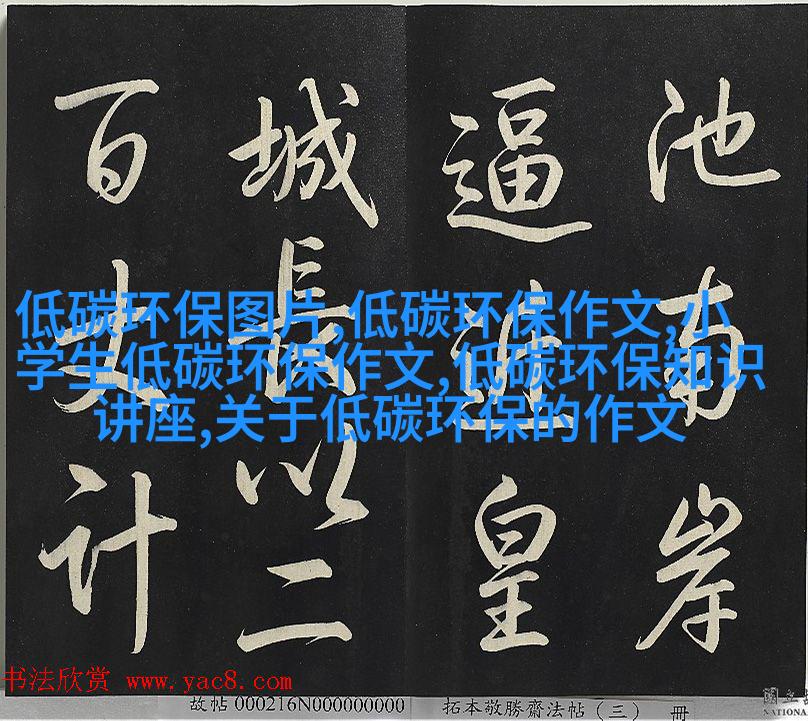 池南岸
逼 皇
城長以二
百丈計
低碳环保图片,低碳环保作文,小
学生低碳环保作文,低碳环保知识
讲座,关于低碳环保的作文
书法欣赏 www.yac8.com
故帖 000216N000000000 拓本敬勝齋法帖(三) 冊
國立
NATIONA